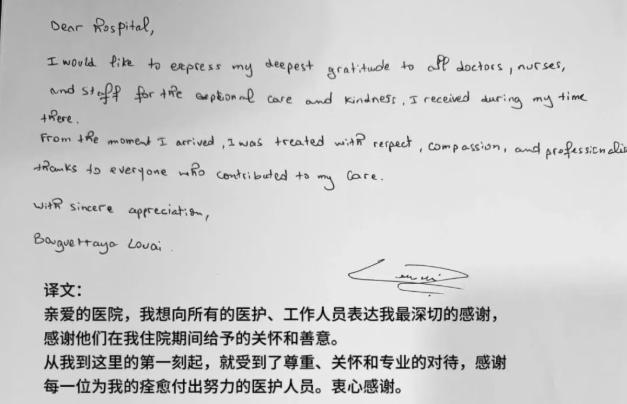 Dear Hospital,
I would like to express my deepest gratitude to all doctors, nurses,
and staff for the exptional care and kindness, I received during my time
there.
From the moment I arrived, I was treated with respect, compassion, and professionalis
thanks to everyone who contributed to my care.
with sincere appreciation,
Bouguettaya Louai.
译文：
亲爱的医院，我想向所有的医护、工作人员表达我最深切的感谢，
感谢他们在我住院期间给予的关怀和善意。
从我到这里的第一刻起，就受到了尊重、关怀和专业的对待，感谢
每一位为我的痊愈付出努力的医护人员。衷心感谢。